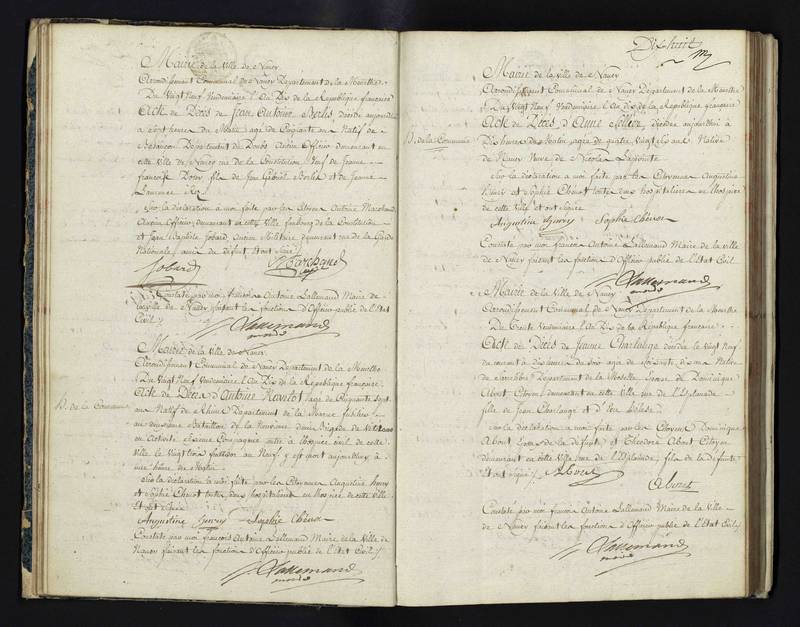 Mairie de la ville de Nancy
Arrondissement Communal de Nancy Departement de la Meurthe
Du Vingt Neuf Vendemiaire l'An Dix de la Republique française
Acte de Décès de Jean Antoine Berlet, décédé aujourd'hui
à heures du Matin agé de Cinquante ans Natif de
Besançon Departement du Doubs Ancien Officier demeurant en
cette ville de Nancy rue de la Constitution de Jeanne
françoise fils de Jean Gabriel Berlet et de Jeanne
Laurence
Sur la déclaration à moi faite par les Citoyens Antoine Marchand
Ancien Officier demeurant en cette ville faubourg de la Constitution
et Jean Baptiste Jobard, Ancien Militaire demeurant rue de la Garde
Nationale, amis du défunt et ont signé
Jobard Marchand
Constaté par moi françois Antoine Lallemand Maire de
la ville de Nancy faisant les fonctions d'Officier public de l'Etat
Civil
Lallemand
Mairie de la Ville de Nancy
Arrondissement Communal de Nancy Departement de la Meurthe
Du Vingt Neuf Vendemiaire l'An Dix de la Republique française
B. de la Commune
Acte de Décès d'Antoine agé de Cinquante Sept
ans Natif de Departement de la Marne fusilier
au deuxième Bataillon de la Demi Brigade de Vétérans
en Activité Compagnie entré à l'hospice civil de cette
ville le Vingt trois fructidor an Neuf y est mort aujourd'hui à
une heure du Matin
Sur la déclaration à moi faite par les Citoyennes Augustine
et Sophie Chénot toutes deux hospitalieres en l'hospice de cette ville
et ont signé
Augustine Sophie Chénot
Constaté par moi françois Antoine Lallemand Maire de la Ville de
Nancy faisant les fonctions d'Officier public de l'Etat Civil
Lallemand
Dix huit
Mairie de la Ville de Nancy
Arrondissement Communal de Nancy Departement de la Meurthe
Du Vingt Neuf Vendemiaire l'An dix de la République française
B. de la Commune
Acte de Décès d'Anne décédée aujourd'hui à
Dix heures du Matin agée de quatre Vingt Six ans Native
de Nancy Veuve de Nicolas Lapointe
Sur la déclaration à moi faite par les Citoyennes Augustine
et Sophie Chénot toutes deux hospitalieres en l'hospice
de cette ville et ont signé
Augustine Sophie Chénot
Constaté par moi françois Antoine Lallemand Maire de la ville
de Nancy faisant les fonctions d'Officier public de l'Etat Civil
Lallemand
Mairie de la Ville de Nancy
Arrondissement Communal de Nancy Departement de la Meurthe
Du Trente Vendemiaire l'An Dix de la République française
Acte de Décès de Jeanne Charlange décédée le Vingt Neuf
du courant à Dix heures du Soir agée de Soixante dix ans Native
de Departement de la Moselle Epouse de Dominique
Abvet Citoyen demeurant en cette Ville rue de l'Esplanade
fille de Jean Charlange et d'
Sur la déclaration à moi faite par les Citoyens Dominique
Epoux de la défunte et Théodore Citoyen
demeurant en cette Ville rue de l'Esplanade, fils de la défunte
et ont signé
Constaté par moi françois Antoine Lallemand Maire de la Ville
de Nancy faisant les fonctions d'Officier public de l'Etat Civil
Lallemand